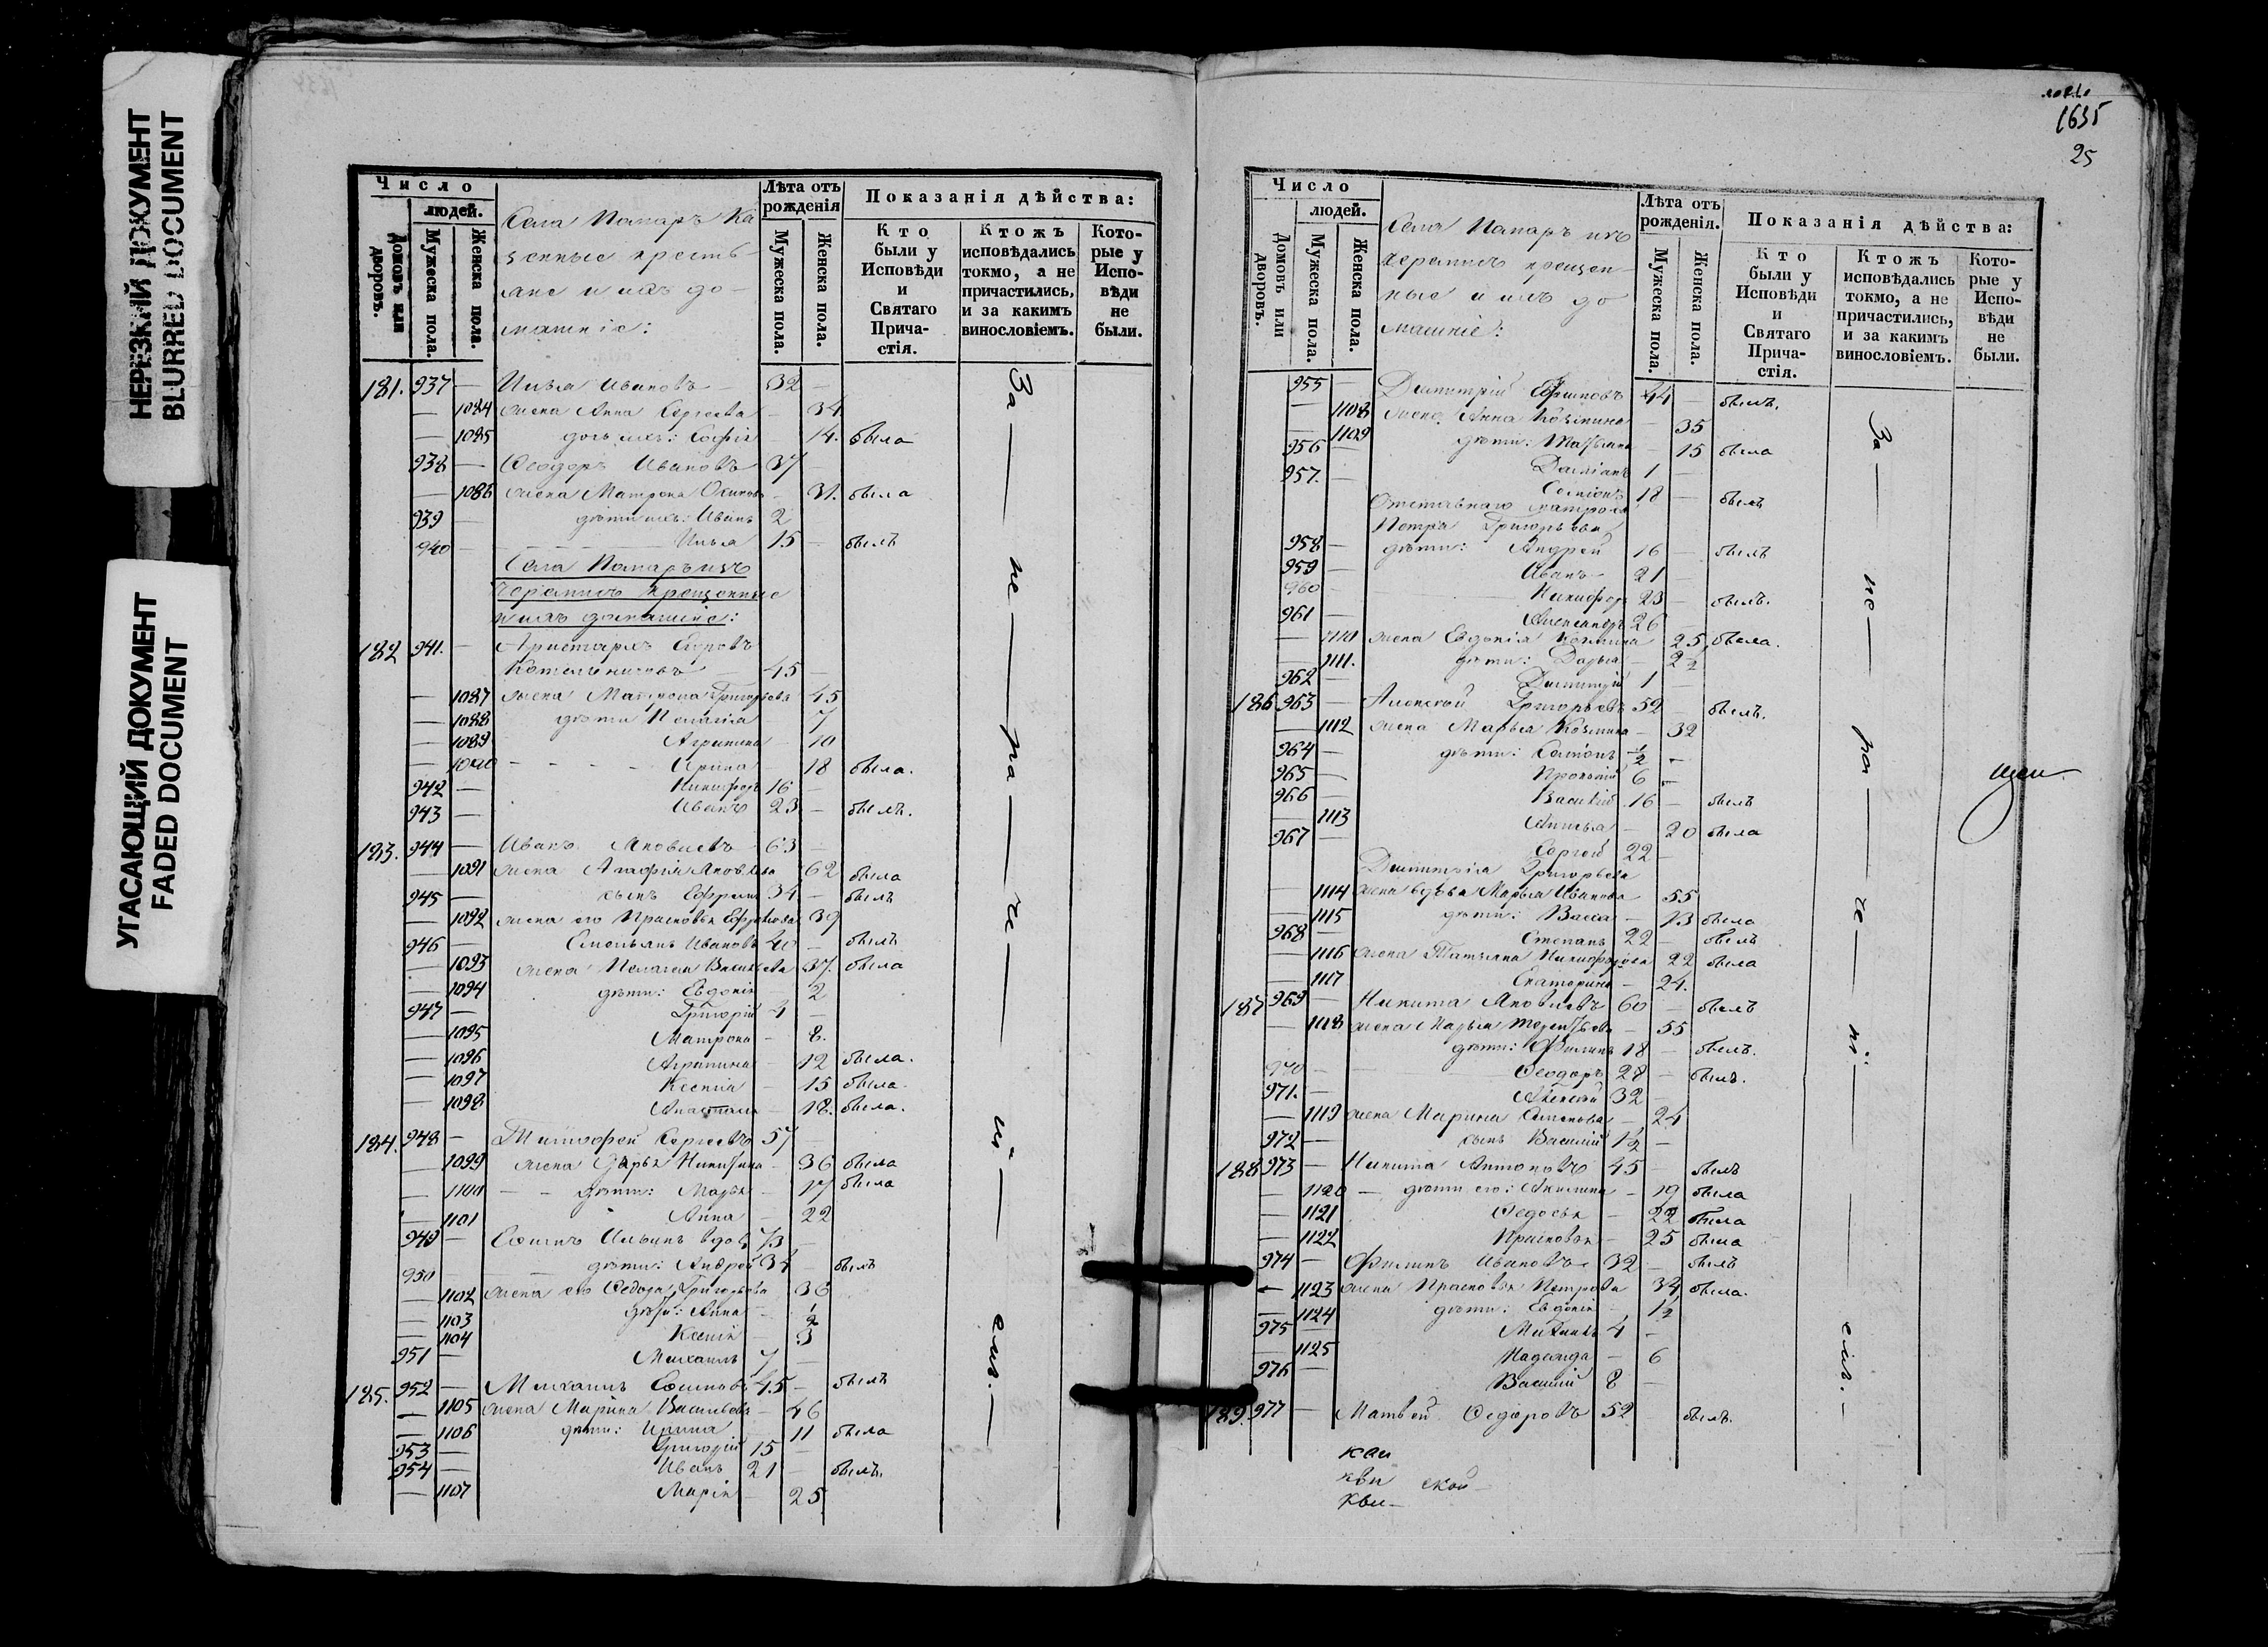 НЕРЕЗКИЙ ДОКУМЕНТ
BLURRED DOCUMENT
УГАСАЮЩИЙ ДОКУМЕНТ
FADED DOCUMENT
Число
людей.
Домовъ или дворовъ.
Мужеска пола.
Женска пола.
Села
домашніе:
Лѣта отъ рожденія
Мужеска пола.
Женска пола.
Показанія дѣйства:
Кто были у Исповѣди и Святаго Причастія.
Ктожъ исповѣдались токмо, а не причастились, и за какимъ винословіемъ.
Которые у Исповѣди не были.
181. 937 — Илья Ивановъ — 32 —
— 1084 жена Анна Сергеева — 34
— 1085 дочь ихъ: Софія — 14. была
938 — Ѳеодоръ Ивановъ 37 —
— 1086 жена Матрона — 31. была
939 — дѣти ихъ: Иванъ 2
940 — Илья 15 — былъ
крещенные
ихъ домашніе:
182 941. — Аристархъ
45 —
— 1087 жена Матрона Григорьева 45
— 1088 дѣти Пелагія — 7
— 1089 Агрипина — 10
— Ирина — 18 была.
942 — Никифоръ 16 —
943 — Иванъ 23 — былъ.
183. 944 — Иванъ Яковлевъ 63 —
— 1091 жена Агафія Яковлева 62 была
945 — сынъ Ефремъ 34 — былъ
— 1092 жена его Прасковья 39
946 — Емельянъ Ивановъ 40 — былъ
— 1093 жена Пелагея Васильева 37. была
— 1094 дѣти: Евдокія — 2
947 — Григорій 4 —
— 1095 Матрона — 8.
— 1096 Агрипина — 12 была.
— 1097 Ксенія — 15 была.
— 1098 Анастасія — 18. была.
184. 948 — Тимофей Сергеевъ 57 —
— 1099 жена Дарья Никитина — 36 была
— 1100 — дѣти: Марья — 17 была
— 1101 Анна — 22
949 — Ильинъ вдовъ 73 —
950 — дѣти: Андрей 34 — былъ
— 1102 жена его Ѳедора Григорьева 36
— 1103 дѣти: Анна — 1/2
— 1104 Ксенія — 3
951 — Михаилъ 7 —
185. 952 — Михаилъ 45 — былъ
— 1105 жена Марина Васильева — 46
— 1106 дѣти: Ирина — 11 была
953 — Григорій 15 —
954 — Иванъ 21 — былъ.
— 1107 Марія — 25
За — не — ра — че — ні — емъ. —
1635
25
Число
людей.
Домовъ или дворовъ.
Мужеска пола.
Женска пола.
Села
крещен-
ные и ихъ до
машніе:
Лѣта отъ рожденія.
Мужеска пола.
Женска пола.
Показанія дѣйства:
Кто были у Исповѣди и Святаго Причастія.
Ктожъ исповѣдались токмо, а не причастились, и за какимъ винословіемъ.
Которые у Исповѣди не были.
955 — Димитрій 44 — былъ.
— 1108 жена Анна Козьмина — 35
— 1109 дѣти: Татьяна — 15 была
956 — Даміанъ 1 —
957. — 18 — былъ
Отставнаго матроса
Петра Григорьева
958 — дѣти: Андрей 16 — былъ
959 — Иванъ 21 —
960 — Никифоръ 23 — былъ.
961 — Александръ 26 —
— 1110 жена Евдокія 25 была.
— 1111. дѣти: Дарья — 2 1/2
962 — Димитрій 1 —
186 963 — Алексей Григорьевъ 52 — былъ.
— 1112 жена Марья Козьмина — 32
964 — дѣти: 1/2 —
965 — Прокопій 6 —
966 — Василій 16 — былъ
— 1113 — 20 была
967 — Сергей 22 —
Димитрія Григорьева
— 1114 жена вдова Марья Иванова 55
— 1115 дѣти: Васса — 13 была
968 — Степанъ 22 — былъ
— 1116 жена Татьяна Никифорова 22 была
— 1117 Екатерина — 24.
187 969 — Никита Яковлевъ 60 — былъ
— 1118 жена Марья — 55
дѣти: Филипъ 18 — былъ.
970 — Ѳеодоръ 28 — былъ.
971. — Алексей 32 —
— 1119 жена Марина — 24
972 — сынъ Василій 1 1/2 —
188 973 — Никита Антоновъ 45 — былъ
— 1120 — дѣти его: Акилина — 19 была
— 1121 Ѳедосья — 22 была
— 1122 Прасковья — 25 была
974 — Филипъ Ивановъ 32 — былъ
— 1123 жена Прасковья Петрова 34 была.
— 1124 дѣти: Евдокія — 1 1/2
975 — 4 —
— 1125 Надежда — 6
976 — Василій 8 —
189. 977 — Матвей Ѳедоровъ 52 былъ.
За — не — ра — че — ні — емъ. —